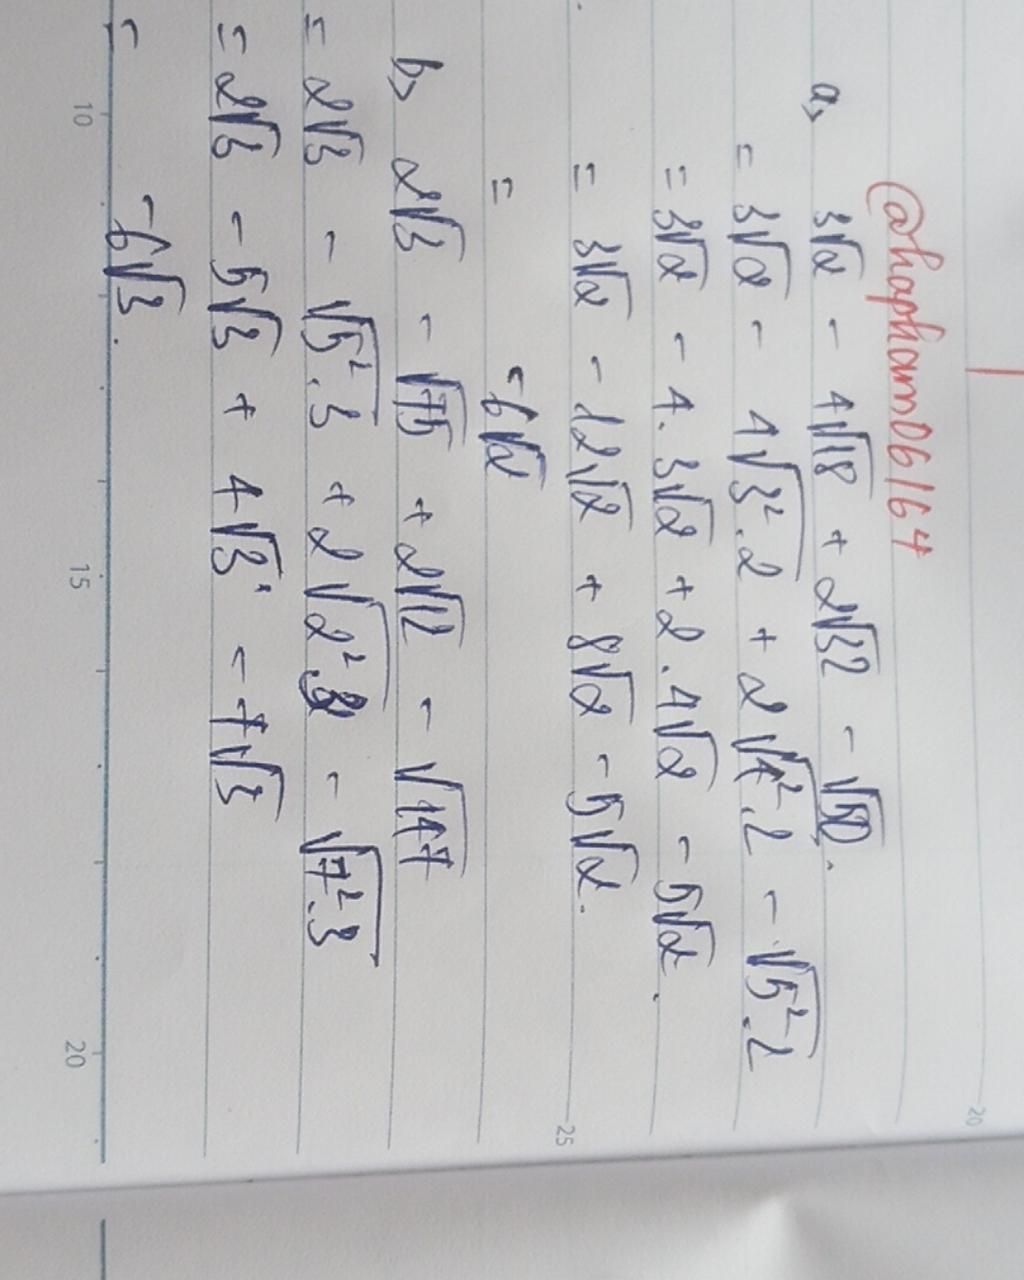 @hapham06164
a, 3√2 - 4√18 + 2√32 - √50.
= 3√2 - 4√3².2 + 2√4².2 - √5².2
= 3√2 - 4.3√2 + 2.4√2 - 5√2.
= 3√2 - 12√2 + 8√2 - 5√2.
= -6√2
b, 2√3 - √75 + 2√12 - √147
= 2√3 - √5².3 + 2√2².3 - √7².3
= 2√3 - 5√3 + 4√3 - 7√3
= -6√3.
10 15 20
25
20